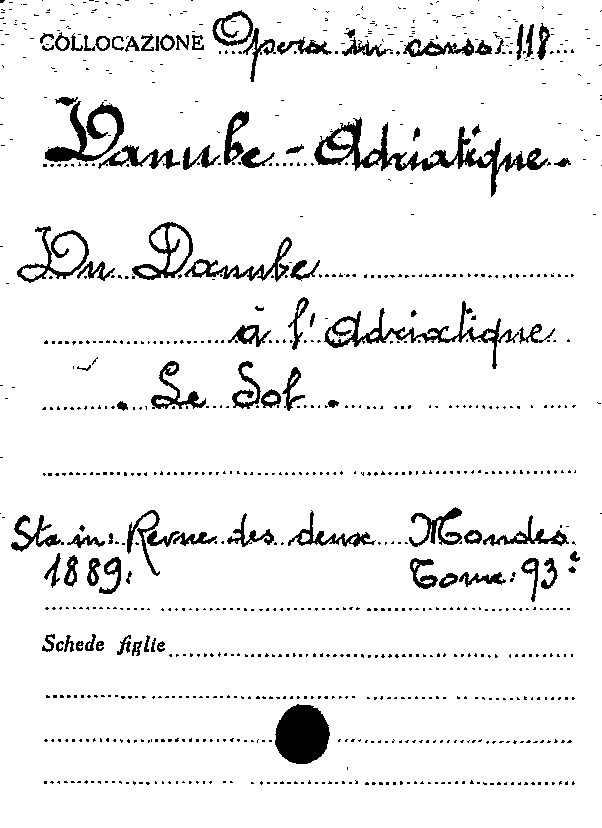 COLLOCAZIONE Opera in corso 118
Danube - Adriatique.
Du Danube
à l'Adriatique
. Le Sol .
Sta in: Revue des deux Mondes
1889. Tome: 93°
Schede figlie